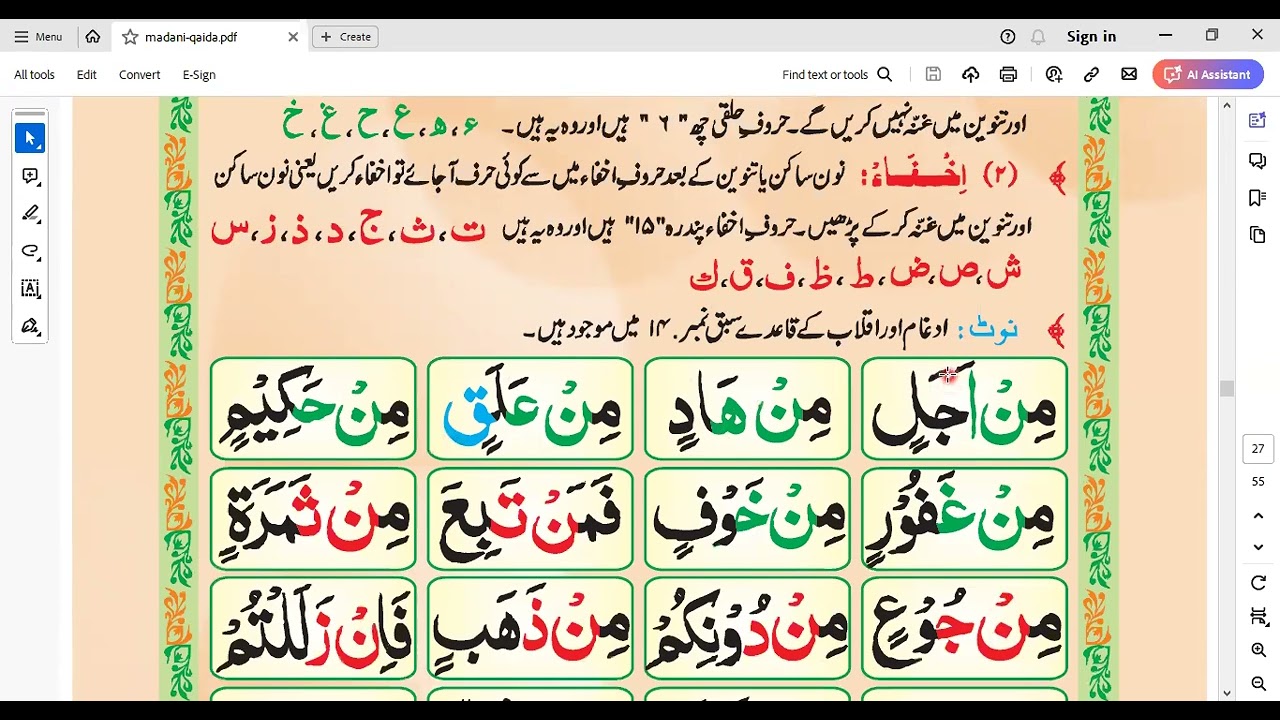 Menu madani-qaida.pdf Create Sign in
All tools Edit Convert E-Sign Find text or tools AI Assistant
اور تنوین میں غنّہ نہیں کریں گے۔ حروفِ حلقی چھ "٦" ہیں اور وہ یہ ہیں۔ ء، ھ، ع، ح، غ، خ
(۲) اِخْفَاءْ: نون ساکن یا تنوین کے بعد حروفِ اخفاء میں سے کوئی حرف آجائے تو اخفاء کریں یعنی نون ساکن
اور تنوین میں غنّہ کر کے پڑھیں۔ حروفِ اخفاء پندرہ "۱۵" ہیں اور وہ یہ ہیں ت، ث، ج، د، ذ، ز، س
ش، ص، ض، ط، ظ، ف، ق، ك
نوٹ: ادغام اور اقلاب کے قاعدے سبق نمبر ۱۴ میں موجود ہیں۔
مِنْ اَجَلٍ مِنْ هَادٍ مِنْ عَلَقٍ مِنْ حَكِيْمٍ
مِنْ غَفُوْرٍ مِنْ خَوْفٍ فَمَنْ تَبِعَ مِنْ ثَمَرَةٍ
مِنْ جُوْعٍ مِنْ دُوْنِكُمْ مِنْ ذَهَبٍ فَاِنْ زَلَلْتُمْ
27
55